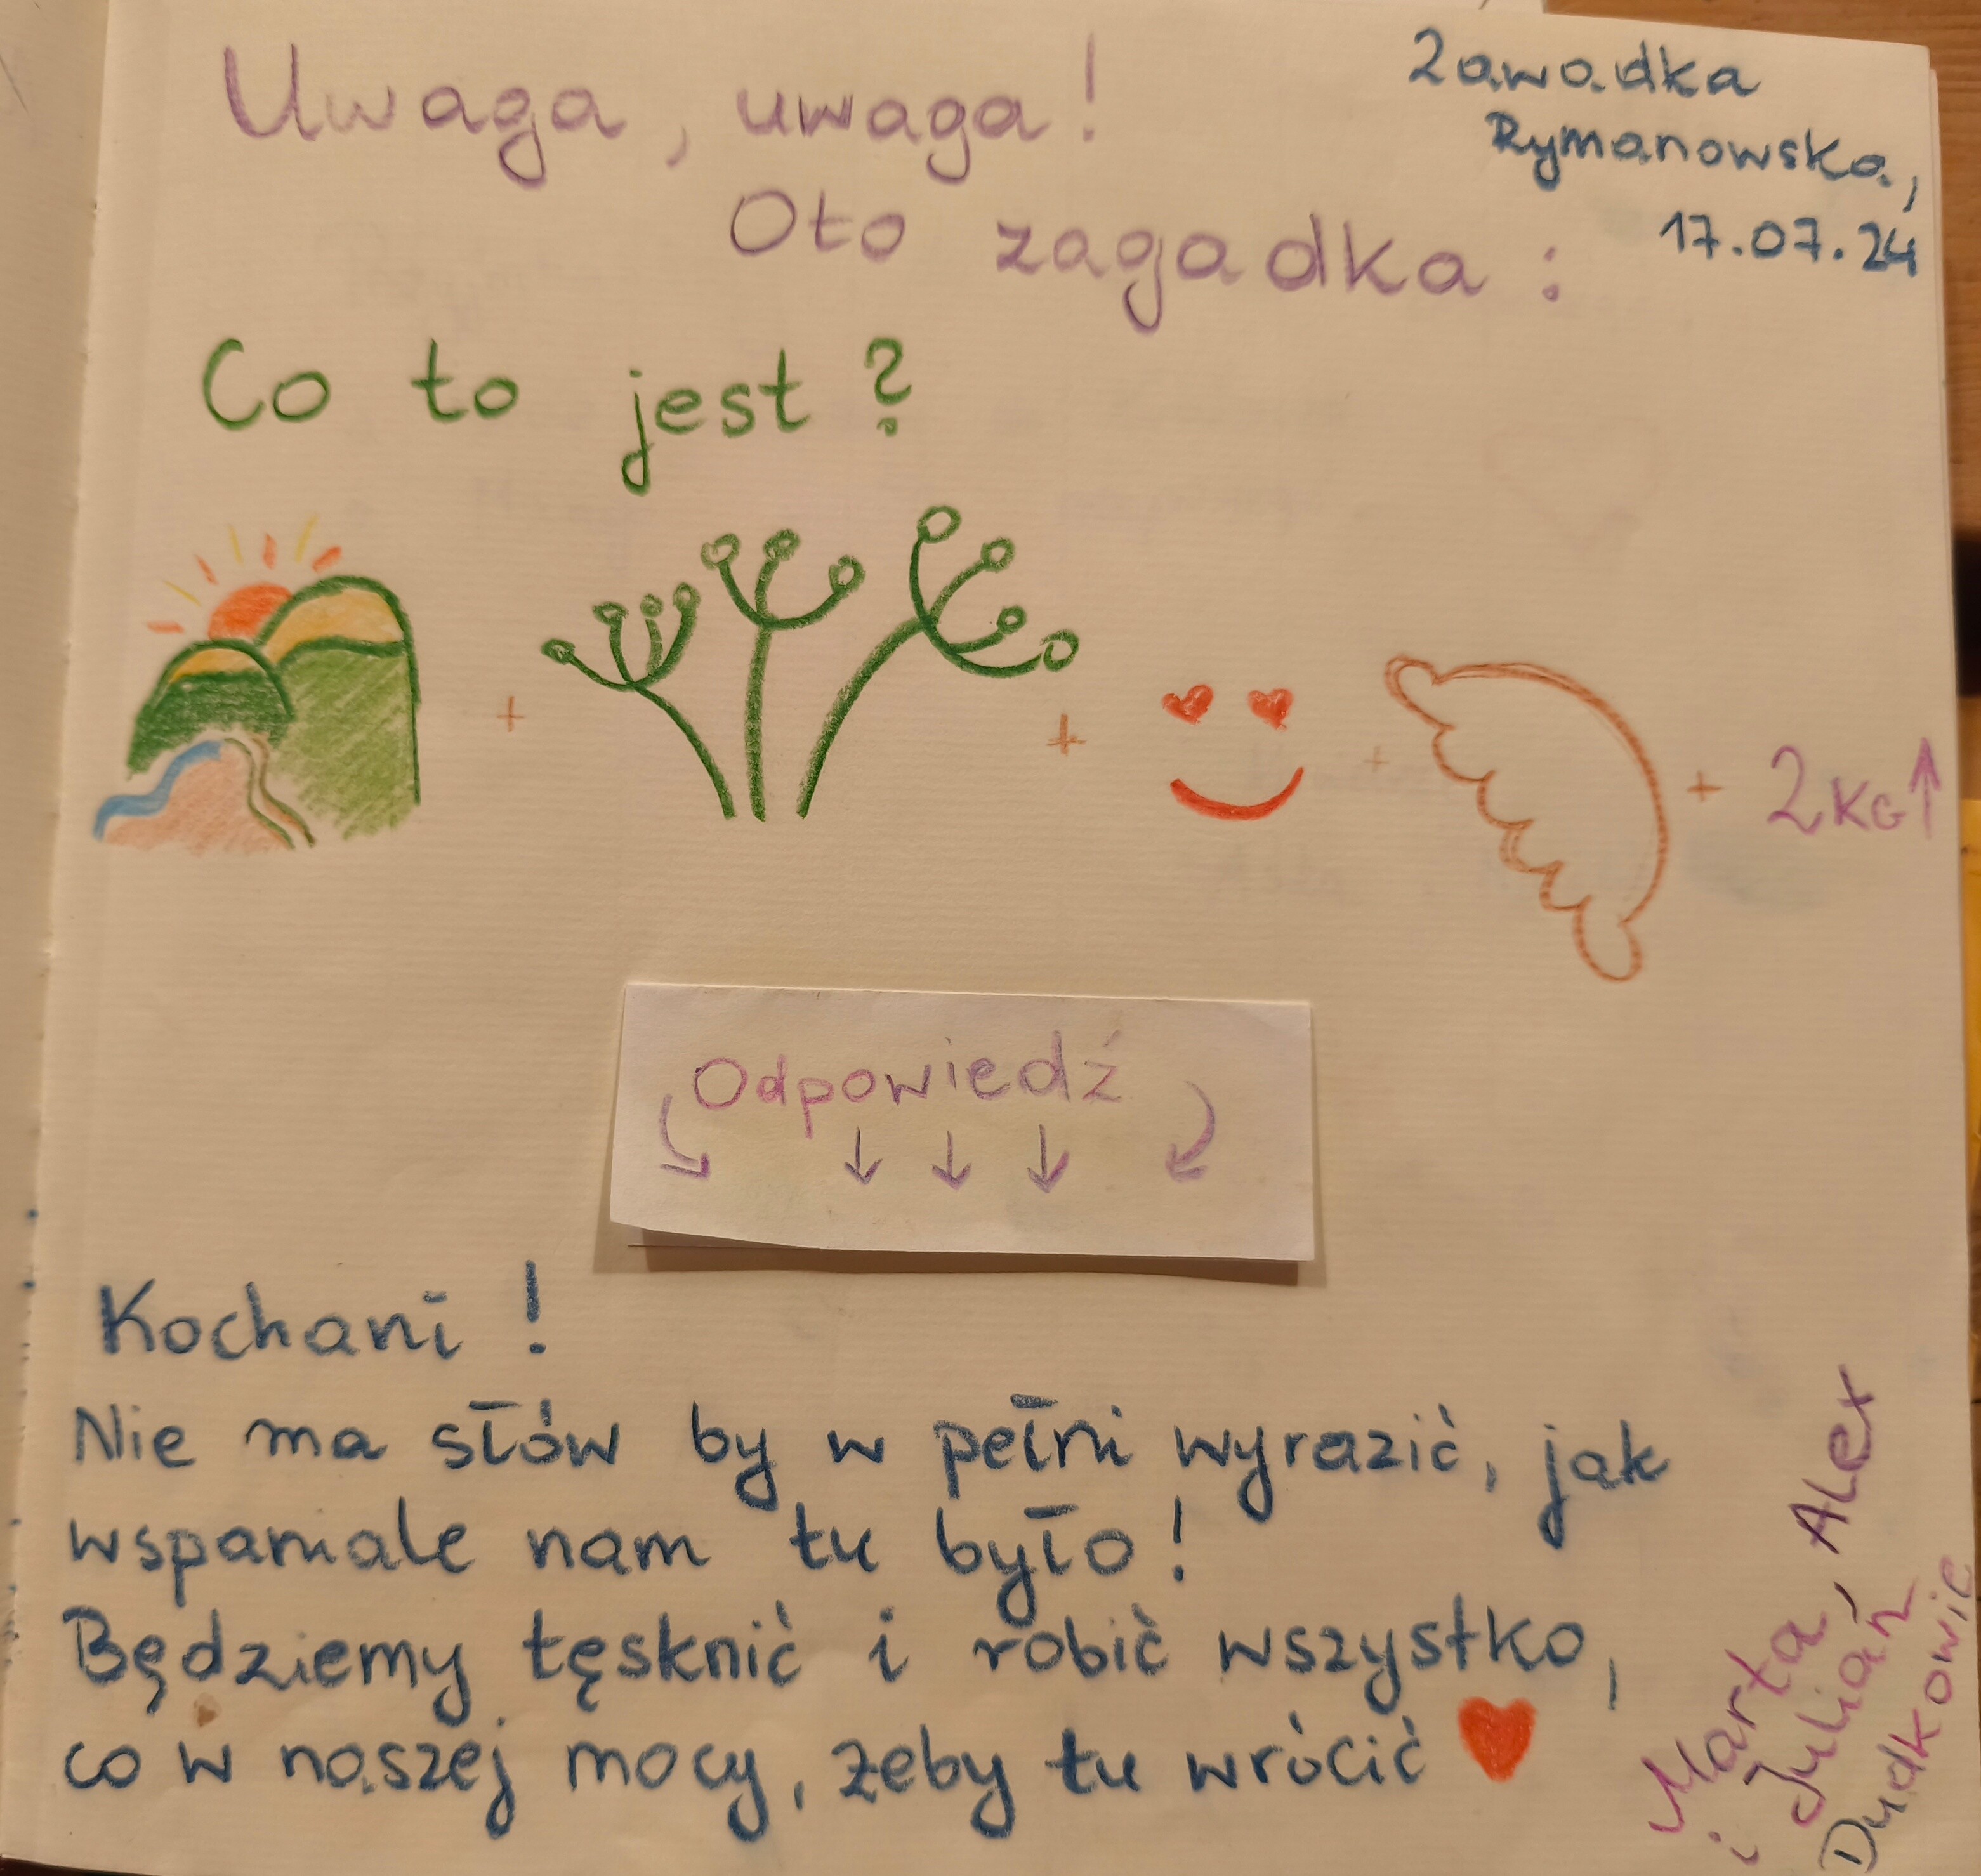 Uwaga, uwaga!
Oto zagadka:
Zawadka
Rymanowska,
17.07.24
Co to jest?
+ + + + 2KG↑
Odpowiedź
↓ ↓ ↓
Kochani!
Nie ma słów by w pełni wyrazić, jak
wspaniale nam tu było!
Będziemy tęsknić i robić wszystko,
co w naszej mocy, żeby tu wrócić
Marta, Alex
i Julian
Dudkowie